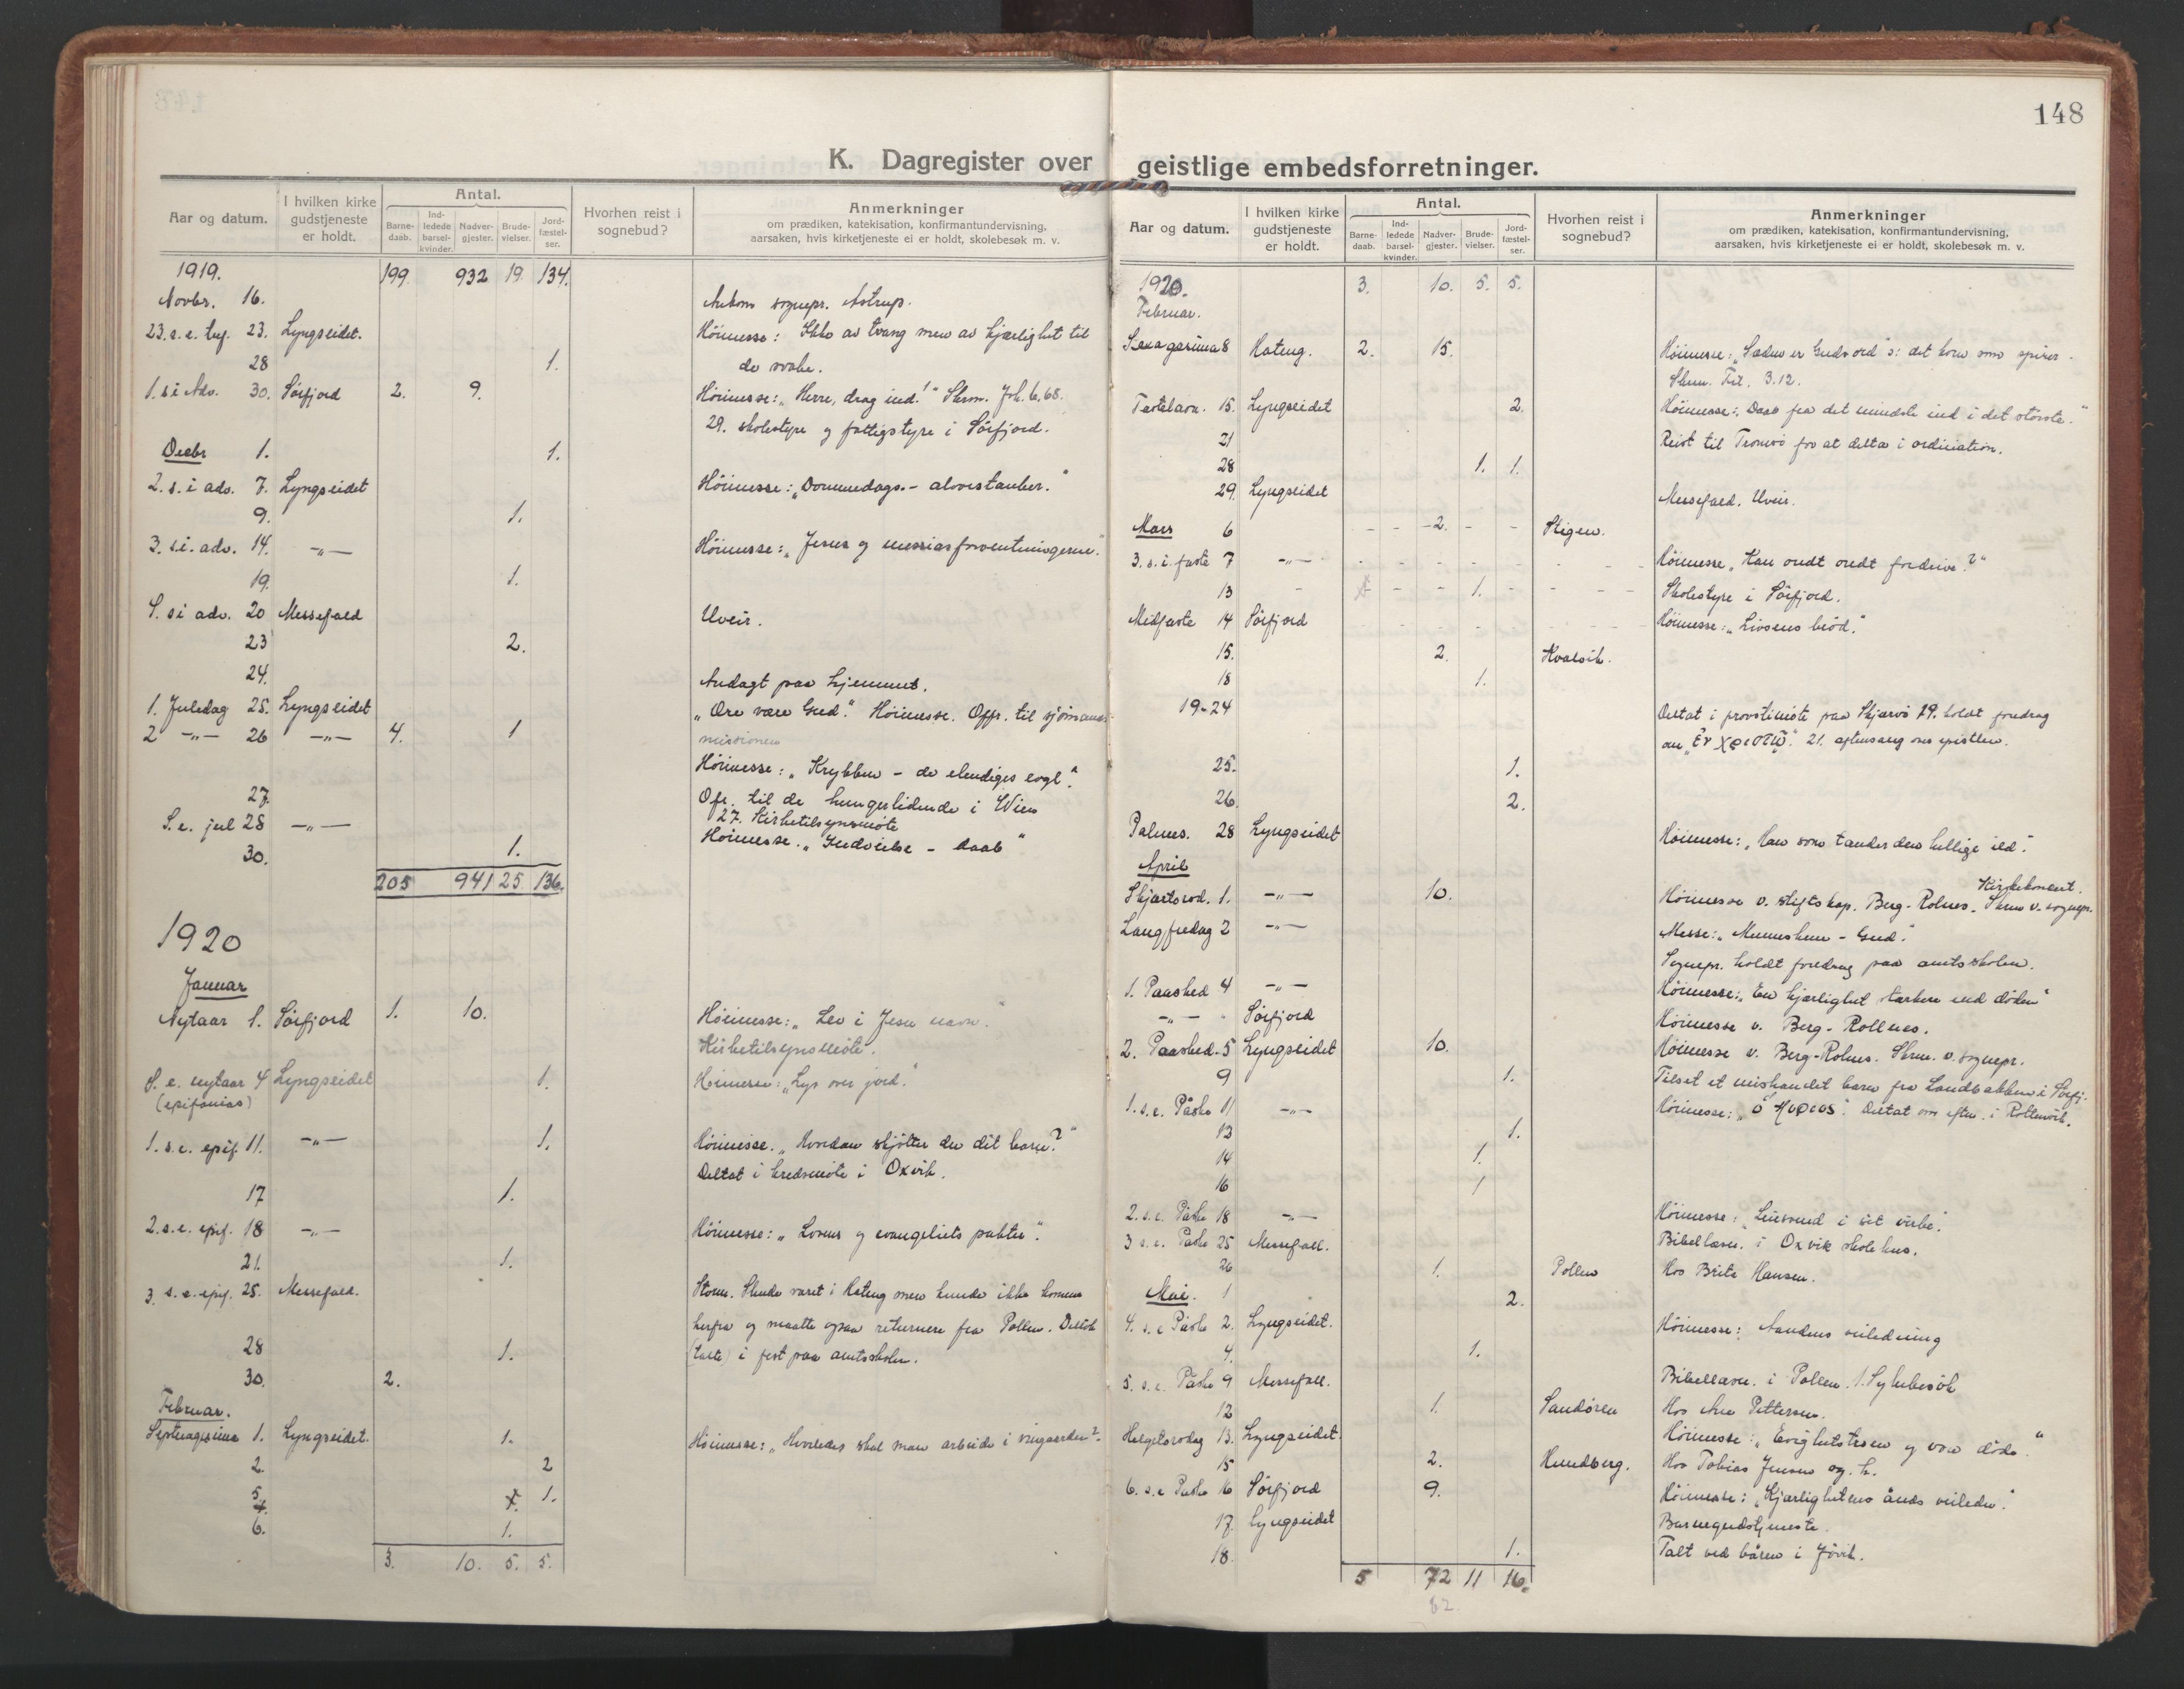 148
K. Dagregister over geistlige embedsforretninger.
Aar og datum.
I hvilken kirke gudstjeneste er holdt.
Antal.
Barne-daab.
Ind-ledede barsel-kvinder.
Nadver-gjester.
Brude-vielser.
Jord-fæstel-ser.
Hvorhen reist i sognebud?
Anmerkninger
om prædiken, katekisation, konfirmantundervisning,
aarsaken, hvis kirketjeneste ei er holdt, skolebesøk m. v.
1919. 199. 932 19. 134.
Novbr. 16. Ankom sognepr. Astrup.
23. s. e. tref. 23. Lyngseidet. Höimesse: Ikke av tvang men av kjærlighet til
28 1. de svake.
1. s. i Adv. 30. Sörfjord 2. 9. Höimesse: „Herre, drag ind!" Skrm. Joh. 6,68.
29. skolestyre og fattigstyre i Sörfjord.
Decbr 1. 1.
2. s. i adv. 7. Lyngseidet Höimesse: „Dommedags-
9. 1.
3. s. i. adv. 14. -„- Höimesse: „Jesus og messiasforventningerne."
19. 1.
4. s i adv. 20 Messefald Uveir.
23 2.
24. Andagt paa hjemmet.
1. Juledag 25. Lyngseidet „Ære være Gud." Höimesse. Offr. til sjömands-
2 -„- 26 -„- 4. 1 missionen
Höimesse: „Krybben - de elendiges
27. Ofr. til de hungerslidende i Wien
27. Kirketilsynsmöte
S. e. jul 28 -„- Höimesse. „Indvielse - daab"
30. 1.
205 941 25 136.
1920
Januar
Nytaar 1. Sörfjord 1. 10. Höimesse: „Lev i Jesu navn.
Kirketilsynsmöte.
S. e. nytaar 4 Lyngseidet 1. Höimesse: „Lys over jord."
(epifanias)
1. s. e. epif. 11. -„- 1. Höimesse. „Hvordan skjötter du dit barn?"
Deltat i kredsmöte i Oxvik.
17 1.
2. s. e. epif. 18 -„- Höimesse: „Lovens og evangeliets pakter".
21. 1.
3. s. e. epif. 25. Messefald. Storm. Skulde været i Kateng men kunde ikke komme
herfra og maatte ogsaa returnere fra Pollen. Deltok
28 1. (talte) i fest paa amtsskolen.
30. 2.
Februar.
Septuagesima 1. Lyngseidet. 1. Höimesse: „Hvorledes skal man arbeide i vingaarden?"
2. 2
5. 1.
6. 1.
3. 10. 5. 5.
Aar og datum.
I hvilken kirke gudstjeneste er holdt.
Antal.
Barne-daab.
Ind-ledede barsel-kvinder.
Nadver-gjester.
Brude-vielser.
Jord-fæstel-ser.
Hvorhen reist i sognebud?
Anmerkninger
om prædiken, katekisation, konfirmantundervisning,
aarsaken, hvis kirketjeneste ei er holdt, skolebesøk m. v.
1920. 3. 10. 5. 5.
Februar.
Sexagesima 8 Kateng. 2. 15. Höimesse: „Sæden er Guds ord" ɔ: det korn som spirer.
Skrm. Tit. 3.12.
Fastelavn. 15. Lyngseidet 2. Höimesse: „Daab fra det mindste ind i det störste."
21 Reist til Tromsö for at delta i ordination.
28 1. 1.
29. Lyngseidet Messefald. Uveir.
Mars 6 2. Stigen.
3. s. i. faste 7 -„- Höimesse „Kan ondt ondt fordrive?"
13 1. Skolestyre i Sörfjord.
Midfaste 14 Sörfjord Höimesse: „Livsens bröd."
15. 2. Kvalvik.
18 1.
19-24 Deltat i provstimöte paa Skjervö 19. holdt foredrag
om „Ἐν Χριστῷ". 21. aftensang over epistlen.
25. 1.
26. 2.
Palmes. 28 Lyngseidet Höimesse: „Han som tænder den hellige ild."
April Kirkekoncert.
Skjærtorsd. 1. -„- 10. Höimesse v. stiftskap. Berg-Rolnes. Skrm v. sognepr.
Langfredag 2 -„- Messe: „Mennesken - Gud."
Sognepr. holdt foredrag paa amtsskolen.
1. Paasked 4 -„- Höimesse: „En kjærlighet sterkere end döden"
-„- Sörfjord Höimesse v. Berg-Rollnes.
2. Paasked. 5 Lyngseidet 10. Höimesse v. Berg-Rolnes. Skrm. v. sognepr.
9 1. Tilset et mishandlet barn fra Sandbakken i Sörfj.
1. s. e. Påske 11 -„- Höimesse: Deltat om eftm. i Rottenvik.
13 1.
14 1.
16 1
2. s. e. Påske 18 -„- Höimesse: „Leiesvend i sit virke."
3 s. e. Påske 25 Messefall. Bibellæsn. i Oxvik skolehus.
26 1. Pollen Hos Brita Hansen.
Mai. 1 2.
4. s. e Påske 2. Lyngseidet. Höimesse: Aandens veiledning
4. 1.
5. s. e. Påske 9 Messefall. Bibellæsn. i Pollen. 1. Sykebesök
12 1. Sandören Hos Ane Pettersen.
Helgetorsdag 13. Lyngseidet. Höimesse: „Evighetstroen og vore döde."
15 2. Hundberg. Hos Tobias Jensen og h.
6. s. e Påske 16 Sörfjord 9. Höimesse: „Kjærlighetens ånds veileder."
17. Lyngseidet Barnegudstjeneste.
18. 1. Talt ved båren i Jövik.
5 72 11 16.
82